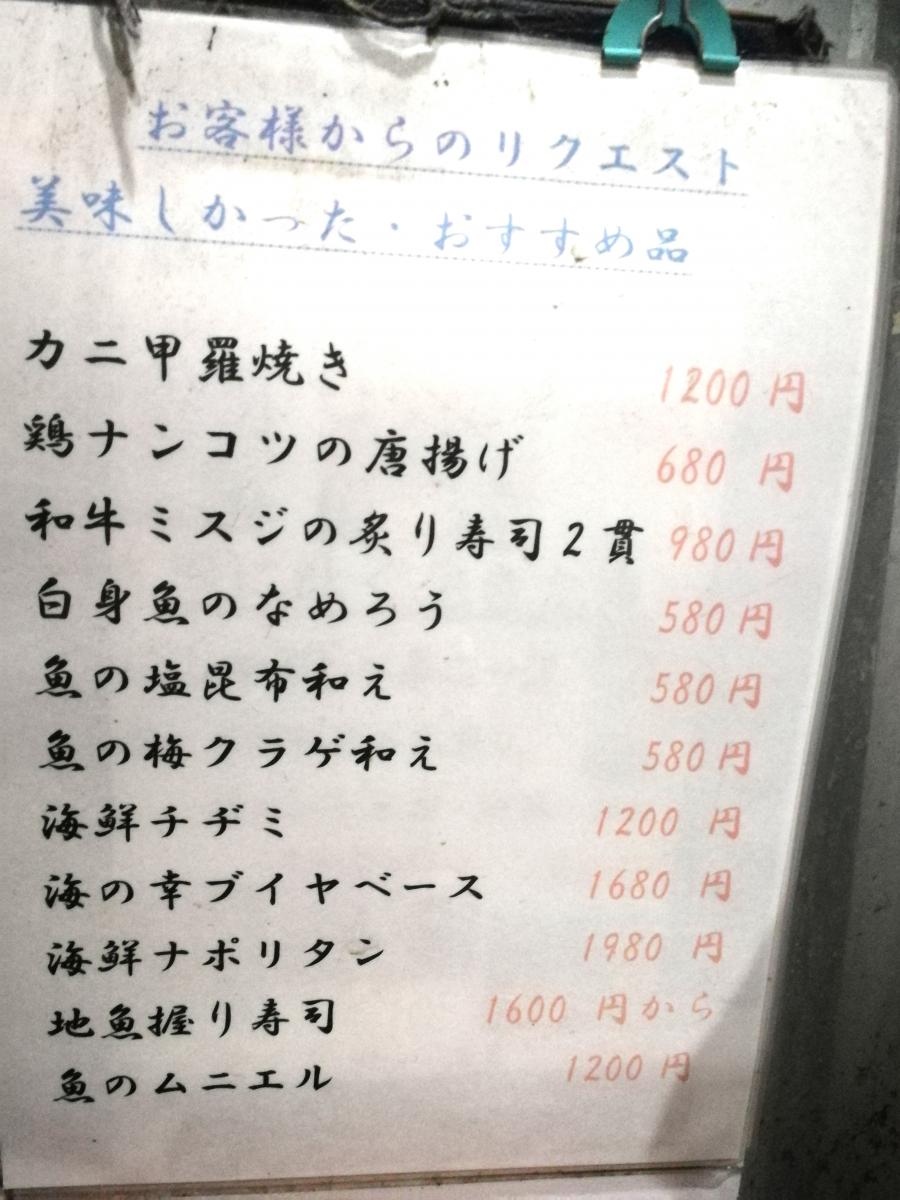 お客様からのリクエスト
美味しかった・おすすめ品
カニ甲羅焼き 1200円
鶏ナンコツの唐揚げ 680 円
和牛ミスジの炙り寿司2貫 980円
白身魚のなめろう 580円
魚の塩昆布和え 580円
魚の梅クラゲ和え 580円
海鮮チヂミ 1200 円
海の幸ブイヤベース 1680 円
海鮮ナポリタン 1980 円
地魚握り寿司 1600 円から
魚のムニエル 1200円